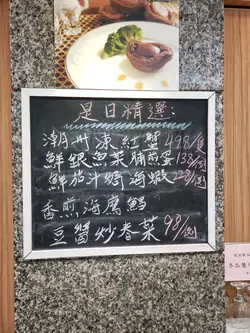 是日精選:
潮州凍紅蟹498/隻
鮮銀魚菜脯煎蛋138/例
鮮茄汁煎海蝦228/例
香煎海鷹鯧
豆醬炒春菜98/例